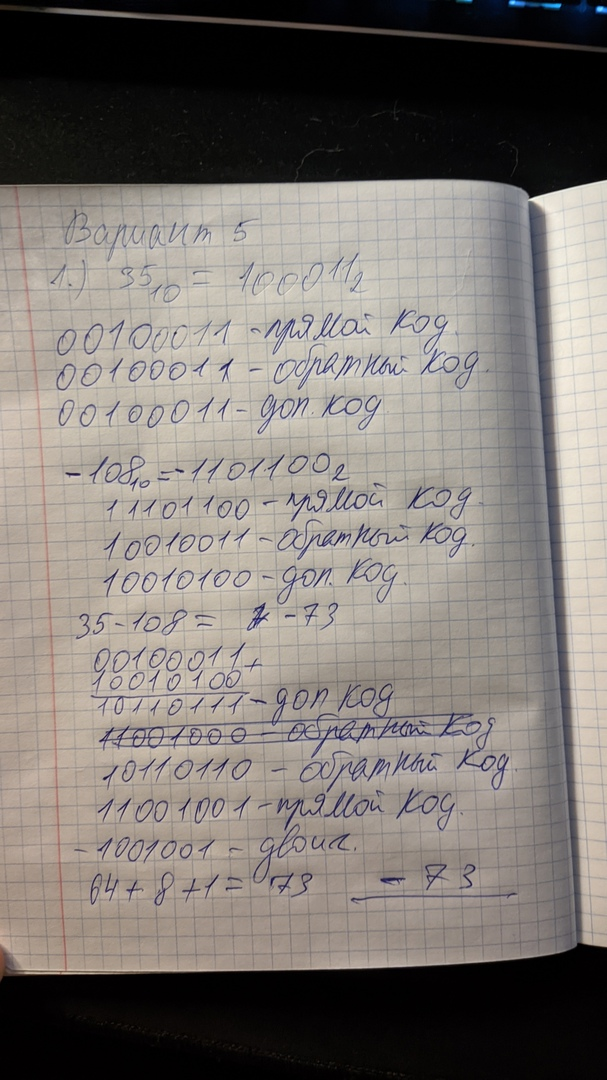 Вариант 5
1.) 35₁₀ = 100011₂
00100011 - прямой код.
00100011 - обратный код.
00100011 - доп. код
-108₁₀ = -1101100₂
11101100 - прямой код.
10010011 - обратный код.
10010100 - доп. код.
35 - 108 = -73
00100011 +
10010100
10110111 - доп код
11001000 - обратный код
10110110 - обратный код.
11001001 - прямой код.
-1001001 - двоич.
64 + 8 + 1 = 73 - 73